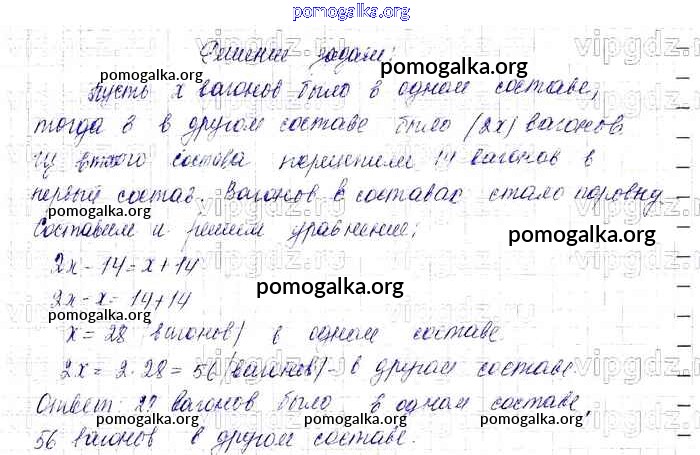 pomogalka.org
Решение задачи:
pomogalka.org
pomogalka.org
Пусть x вагонов было в одном составе,
тогда в в другом составе было (2x) вагонов.
Из второго состава переместили 14 вагонов в
первый состав. Вагонов в составах стало поровну.
pomogalka.org
Составим и решим уравнение:
pomogalka.org
2x - 14 = x + 14
2x - x = 14 + 14
pomogalka.org
x = 28 вагонов) в одном составе
2x = 2 · 28 = 56 (вагонов) - в другом составе
pomogalka.org
pomogalka.org
Ответ: вагонов было в одном составе,
pomogalka.org
pomogalka.org
pomogalka.org
56 вагонов в другом составе.
vipgdz.ru
vipgdz.ru
vipgdz.ru
vipgdz.ru